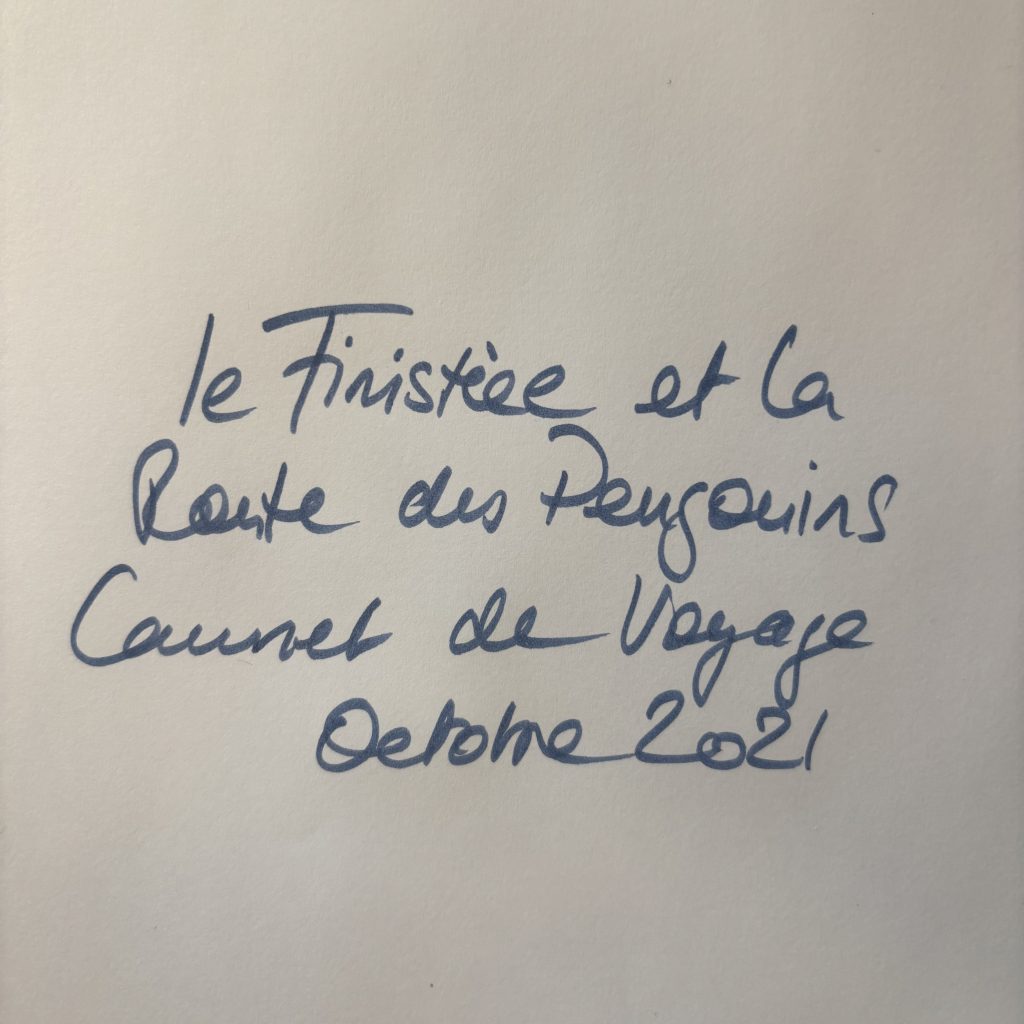 le Finistère et la
Route des Pingouins
Carnet de Voyage
Octobre 2021